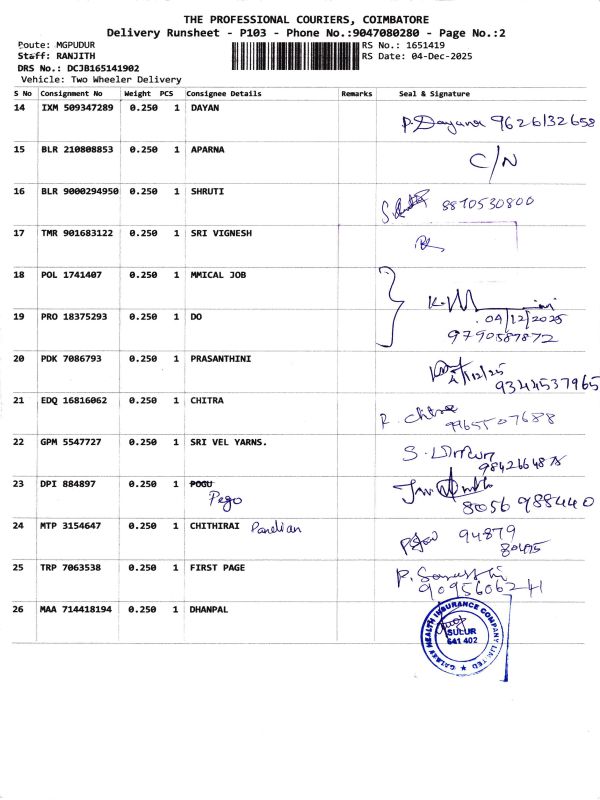 THE PROFESSIONAL COURIERS, COIMBATORE
Delivery Runsheet - P103 - Phone No.:9047080280 - Page No.:2
Route: MGPUDUR RS No.: 1651419
Staff: RANJITH RS Date: 04-Dec-2025
DRS No.: DCJB165141902
Vehicle: Two Wheeler Delivery
S No Consignment No Weight PCS Consignee Details Remarks Seal & Signature
14 IXM 509347289 0.250 1 DAYAN
P. Dayana 9626132658
15 BLR 210808853 0.250 1 APARNA
C/N
16 BLR 9000294950 0.250 1 SHRUTI
8870530800
17 TMR 901683122 0.250 1 SRI VIGNESH
18 POL 1741407 0.250 1 MMICAL JOB
19 PRO 18375293 0.250 1 DO
04/12/2025
9790587872
20 PDK 7086793 0.250 1 PRASANTHINI
4/12/25
9344537965
21 EDQ 16816062 0.250 1 CHITRA
R. Chitra
9965507688
22 GPM 5547727 0.250 1 SRI VEL YARNS.
9842664878
23 DPI 884897 0.250 1 POGU
Pego
8056988440
24 MTP 3154647 0.250 1 CHITHIRAI Pandian
94879
80475
25 TRP 7063538 0.250 1 FIRST PAGE
9095606241
26 MAA 714418194 0.250 1 DHANPAL
HEALTH INSURANCE COMPANY LIMITED
SULUR
641 402